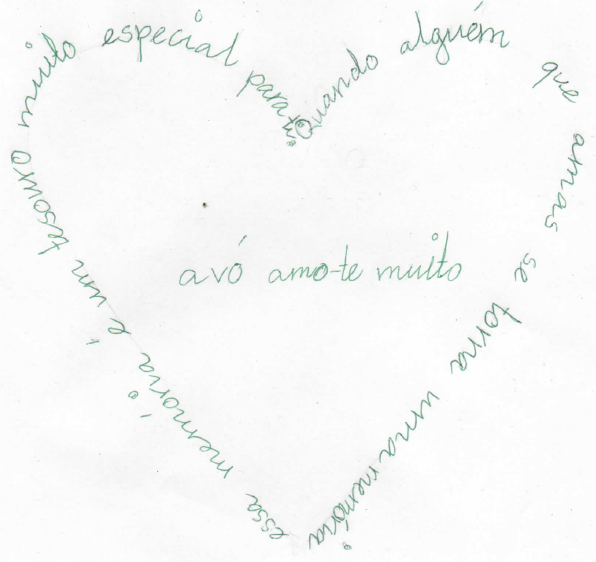 Quando alguém que amas se torna uma memória essa memória é um tesouro muito muito especial para ti
avó amo-te muito